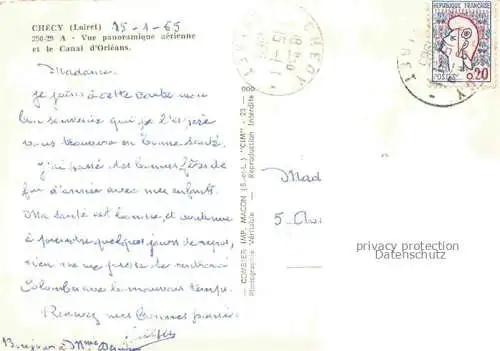 CHECY (Loiret) 15-1-65
250-29 A - Vue panoramique aérienne
et le Canal d'Orléans.
Madame
je joins à cette carte mon
bon souvenir qui je l'espère
vous trouvera en bonne santé.
J'ai passé des bonnes fêtes de
fin d'année avec mes enfants.
Ma santé est bonne, et continue
à prendre quelques jours de repos,
rien ne me presse de rentrer à
Colombes avec le mauvais temps.
Recevez mes bonnes pensées
Bonjour à Mme
COMBIER IMP. MACON (S.-et-L.) "CIM"
Photographie Véritable - Reproduction Interdite
CHECY
REPUBLIQUE FRANCAISE
POSTES 0,20
Mad
5
privacy protection
Datenschutz